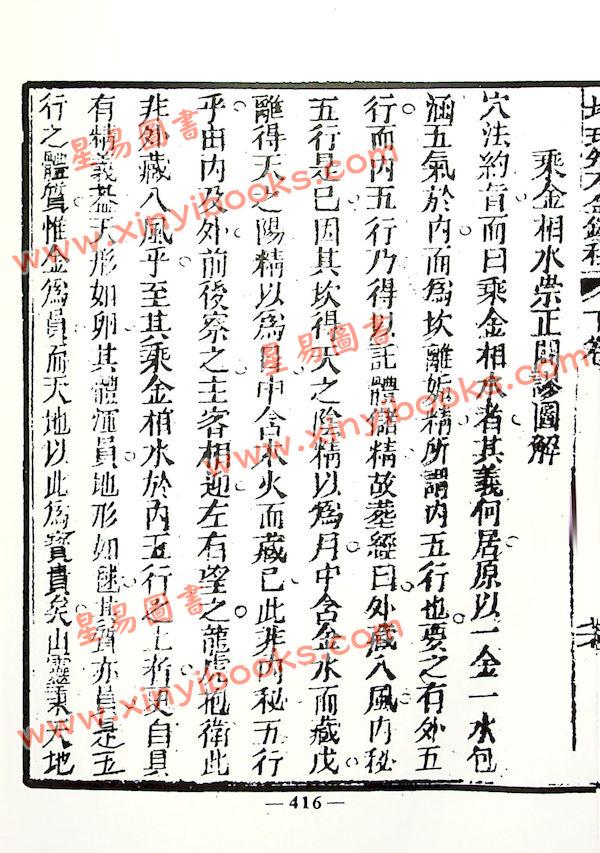 乘金相水崇正闢謬圖解
穴法約旨而曰乘金相水者其義何居原以一金一水包
涵五氣於内而為坎離妬精所謂内五行也要之有外五
行而内五行乃得以託體儲精故葬經曰外藏八風内秘
五行是已因其坎得天之陰精以為月中含金水而藏戊
離得天之陽精以為日中含木火而藏已此非内秘五行
乎由内及外前後察之主客相迎左右望之龍虎抱衛此
非外藏八風乎至其乘金相水於内五行之上者更自具
有精義葢天形如卵其體渾員地形如毬其質亦員是五
行之體質惟金為員而天地以此為寶貴矣山靈秉天地
下卷
星易圖書
www.xinyibooks.com
星易圖書
www.xinyibooks.com
星易圖書
www.xinyibooks.com
— 416 —